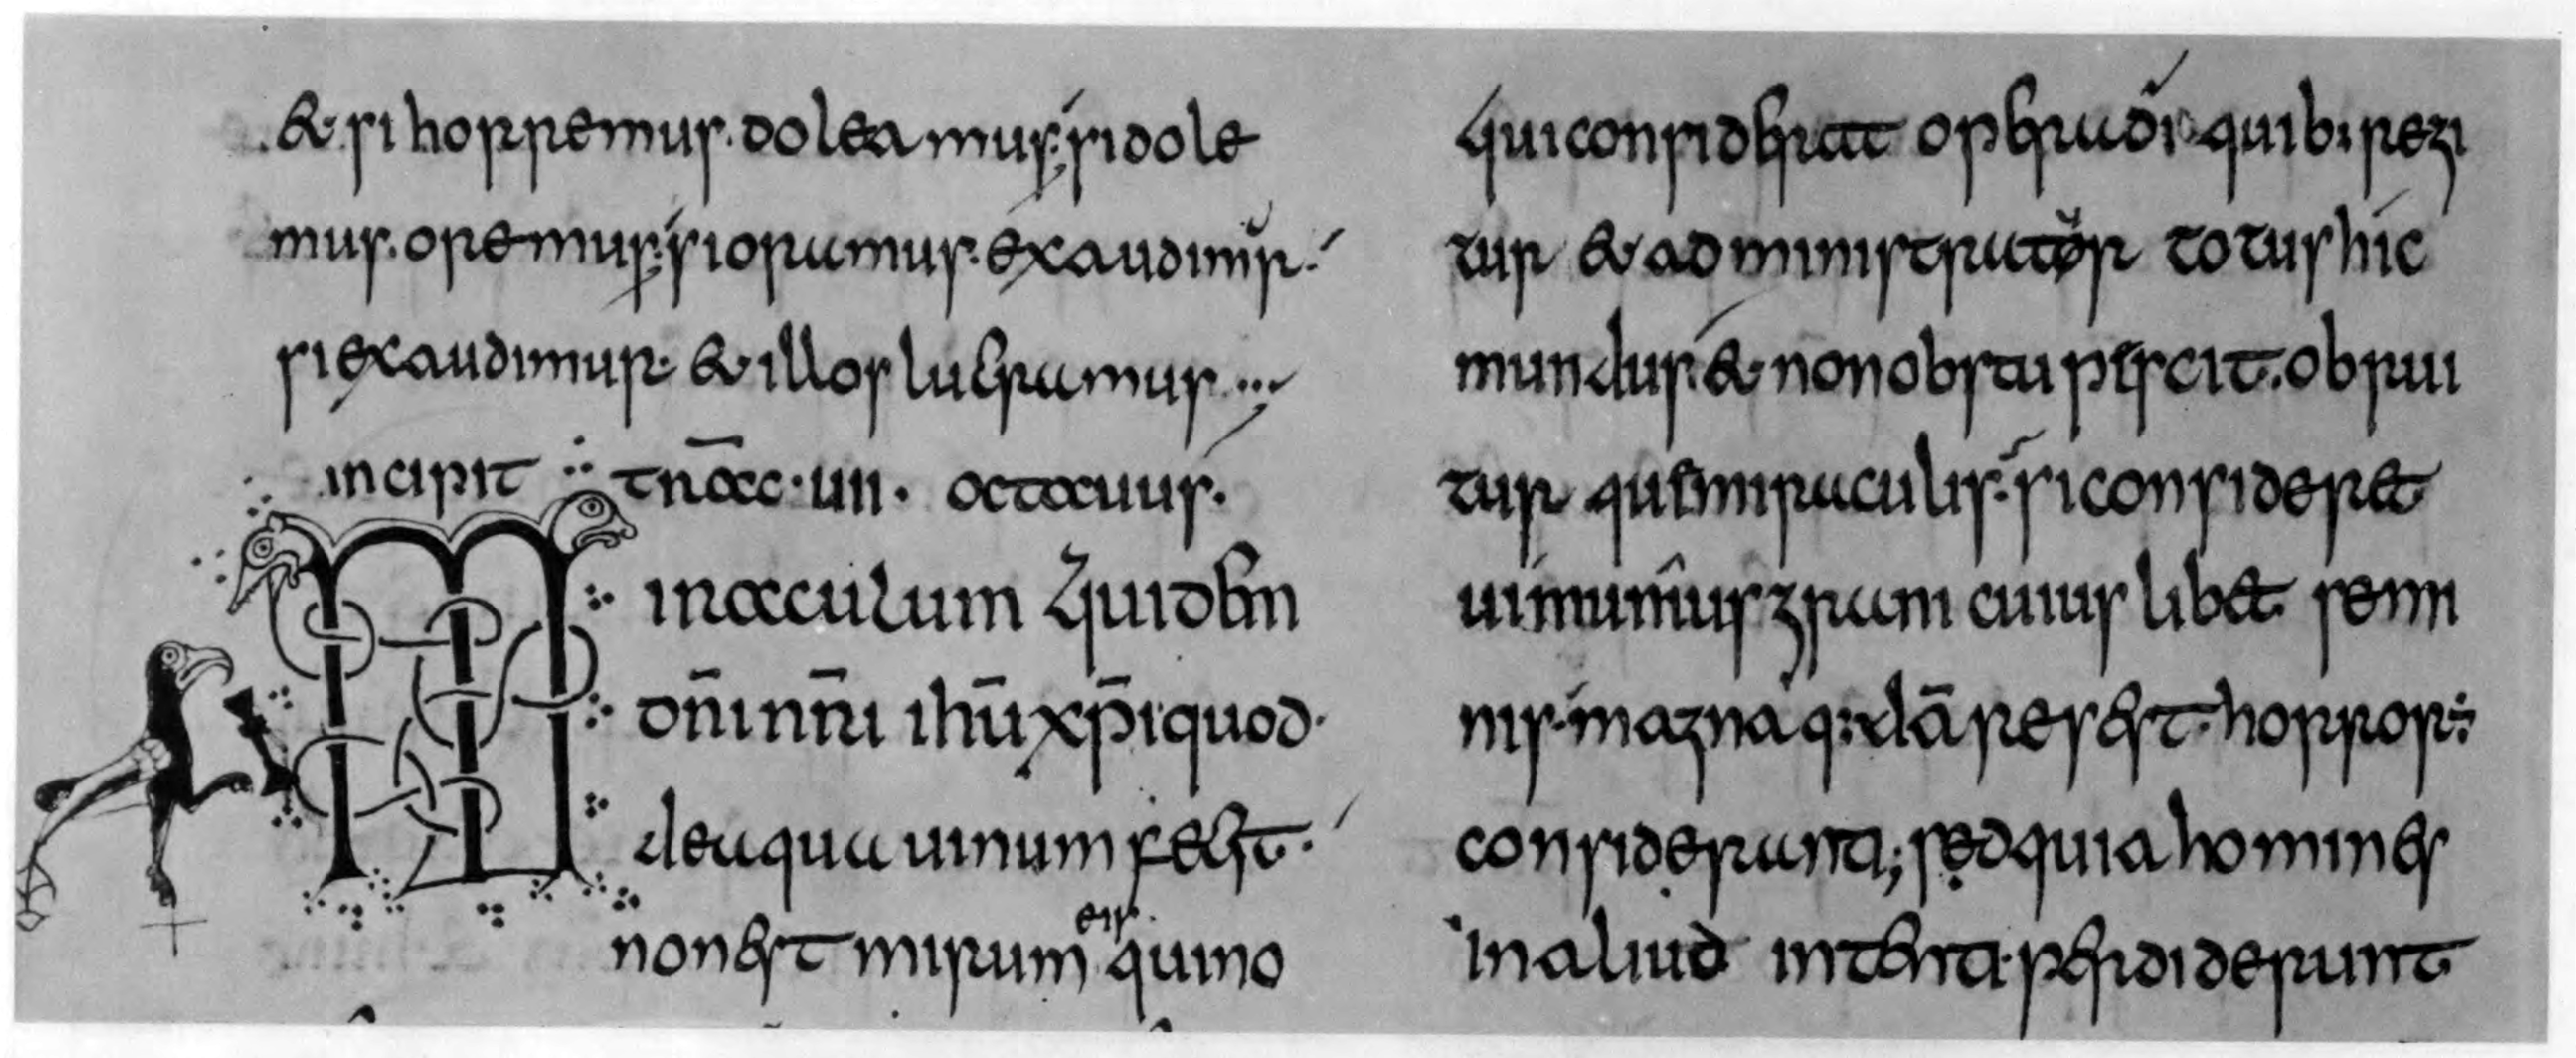 & si horremus. doleamus; si dole
mus. oremus; si oramus. exaudimur.
si exaudimur. & illos lucramus
incipit tr̄ac · uii · octauus.
Miraculum quidem
dn̄i nr̄i ihū xp̄i quod
de aqua uinum fecit.
non est mirum eis qui no
qui considerat opera dī quib; regi
tur & administratur totus hic
mundus & non obstupescit. obrui
tur que miraculis; si consideret
uim unius grani cuius libet semi
nis. magna q;dā res est. horror;
consideranti; sed quia homines
in aliud intenti perdiderunt